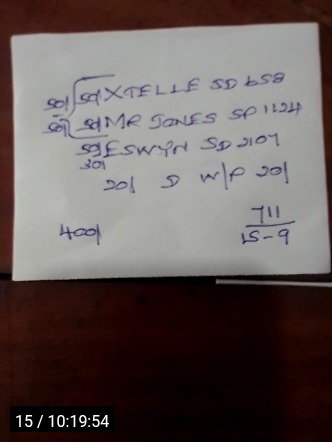 50/ 50/ XTELLE SD 658
50/ 50/ MR JONES SP 1124
50/ ESWYN SD 2107
30/
20/ S W/P 20/
400/
711
15-9
15 / 10:19:54